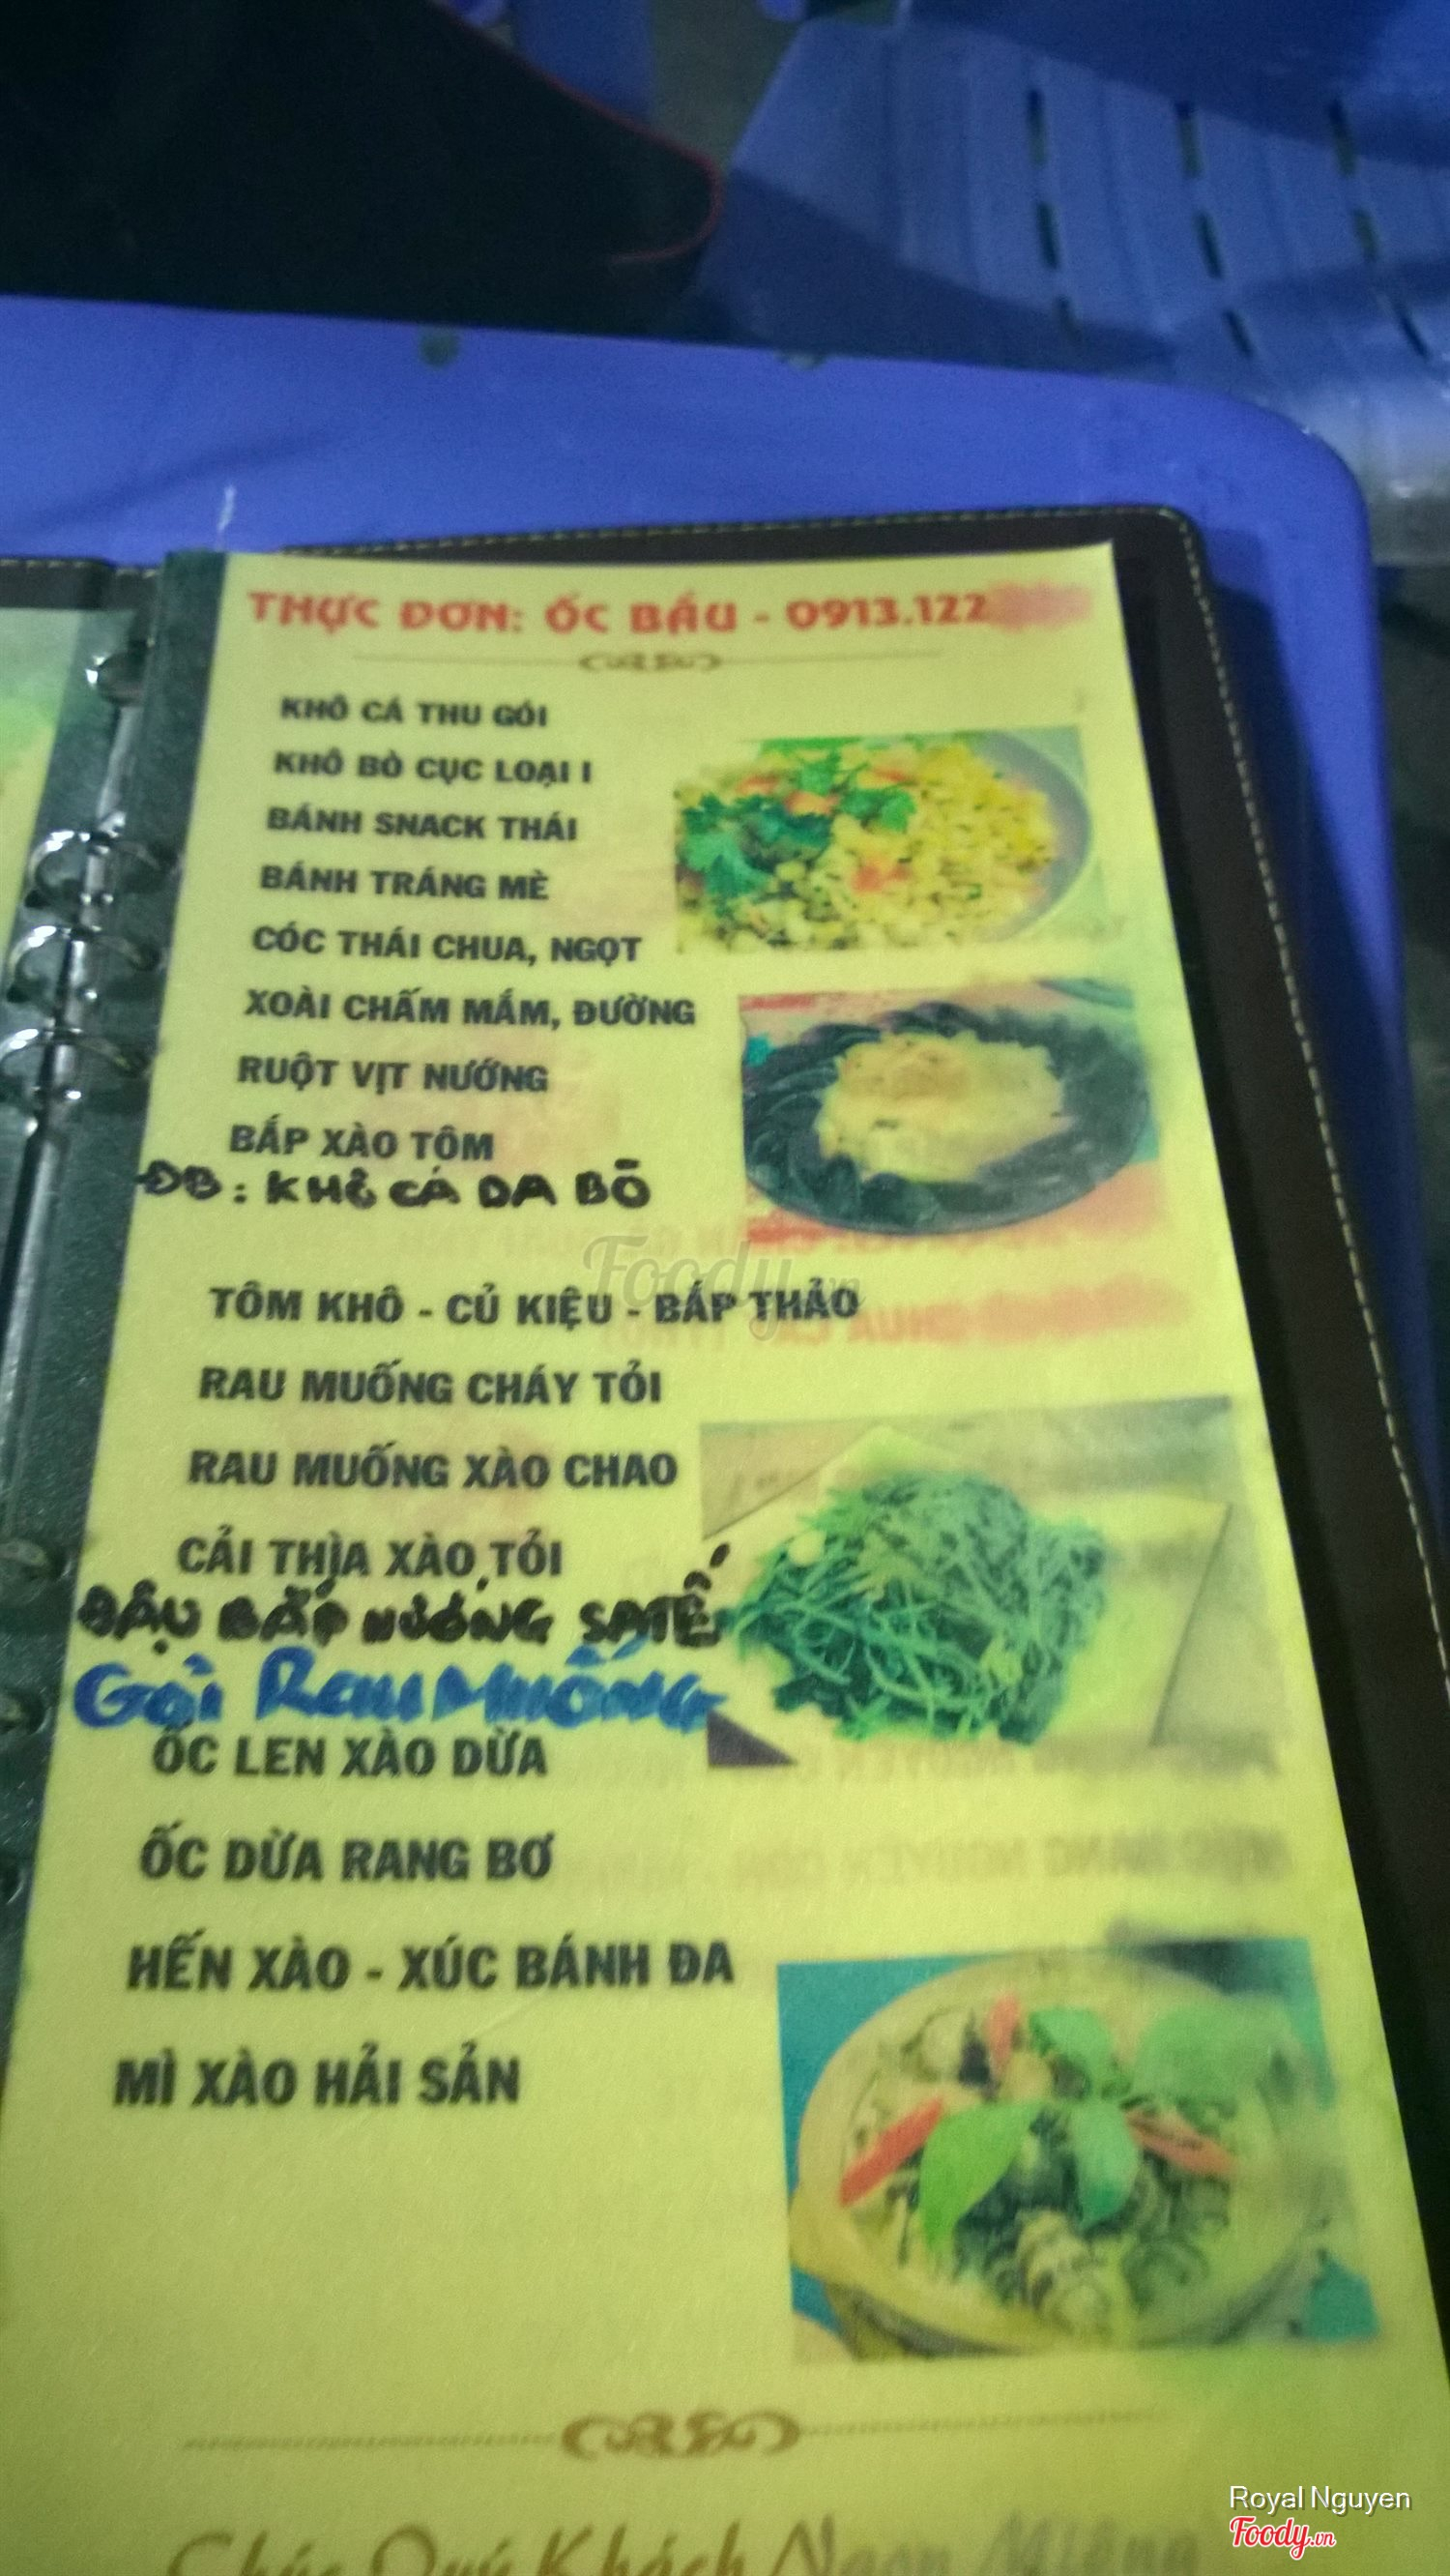 THỰC ĐƠN: ỐC BẦU - 0913.122
KHÔ CÁ THU GÓI
KHÔ BÒ CỤC LOẠI I
BÁNH SNACK THÁI
BÁNH TRÁNG MÈ
CÓC THÁI CHUA, NGỌT
XOÀI CHẤM MẮM, ĐƯỜNG
RUỘT VỊT NƯỚNG
BẮP XÀO TÔM
ĐB: KHÔ CÁ DA BÒ
Foody.vn
TÔM KHÔ - CỦ KIỆU - BẮP THẢO
RAU MUỐNG CHÁY TỎI
RAU MUỐNG XÀO CHAO
CẢI THÌA XÀO TỎI
ĐẬU BẮP NƯỚNG SATẾ
Gỏi Rau Muống
ỐC LEN XÀO DỪA
ỐC DỪA RANG BƠ
HẾN XÀO - XÚC BÁNH ĐA
MÌ XÀO HẢI SẢN
Chúc Quý Khách Ngon Miệng
Royal Nguyen
Foody.vn